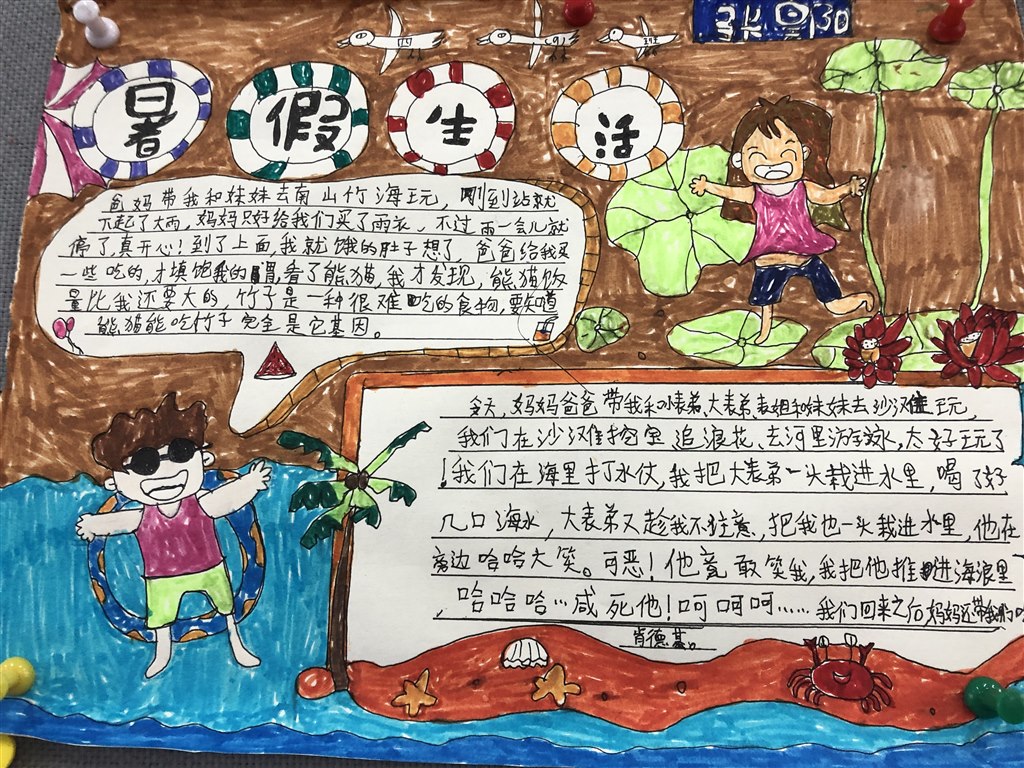 暑假生活
爸妈带我和妹妹去南山竹海玩，刚到站就
下起了大雨，妈妈只好给我们买了雨衣，不过雨一会儿就
停了真开心！到了上面，我就饿的肚子想了，爸爸给我买
一些吃的，才填饱我的胃，看了熊猫，我才发现，熊猫饭
量比我还要大的，竹子是一种很难吃的食物，要知道
熊猫能吃竹子完全是它基因。
今天，妈妈爸爸带我和小表弟、大表弟、表姐和妹妹去沙滩玩，
我们在沙滩挖宝、追浪花、去河里游泳，太好玩了
！我们在海里打水仗，我把大表弟一头栽进水里，喝了好
几口海水，大表弟又趁我不注意，把我也一头栽进水里，他在
旁边哈哈大笑。可恶！他竟敢笑我，我把他推进海浪里
，哈哈哈…咸死他！呵呵呵……我们回来之后，妈妈还带我们
肯德基。